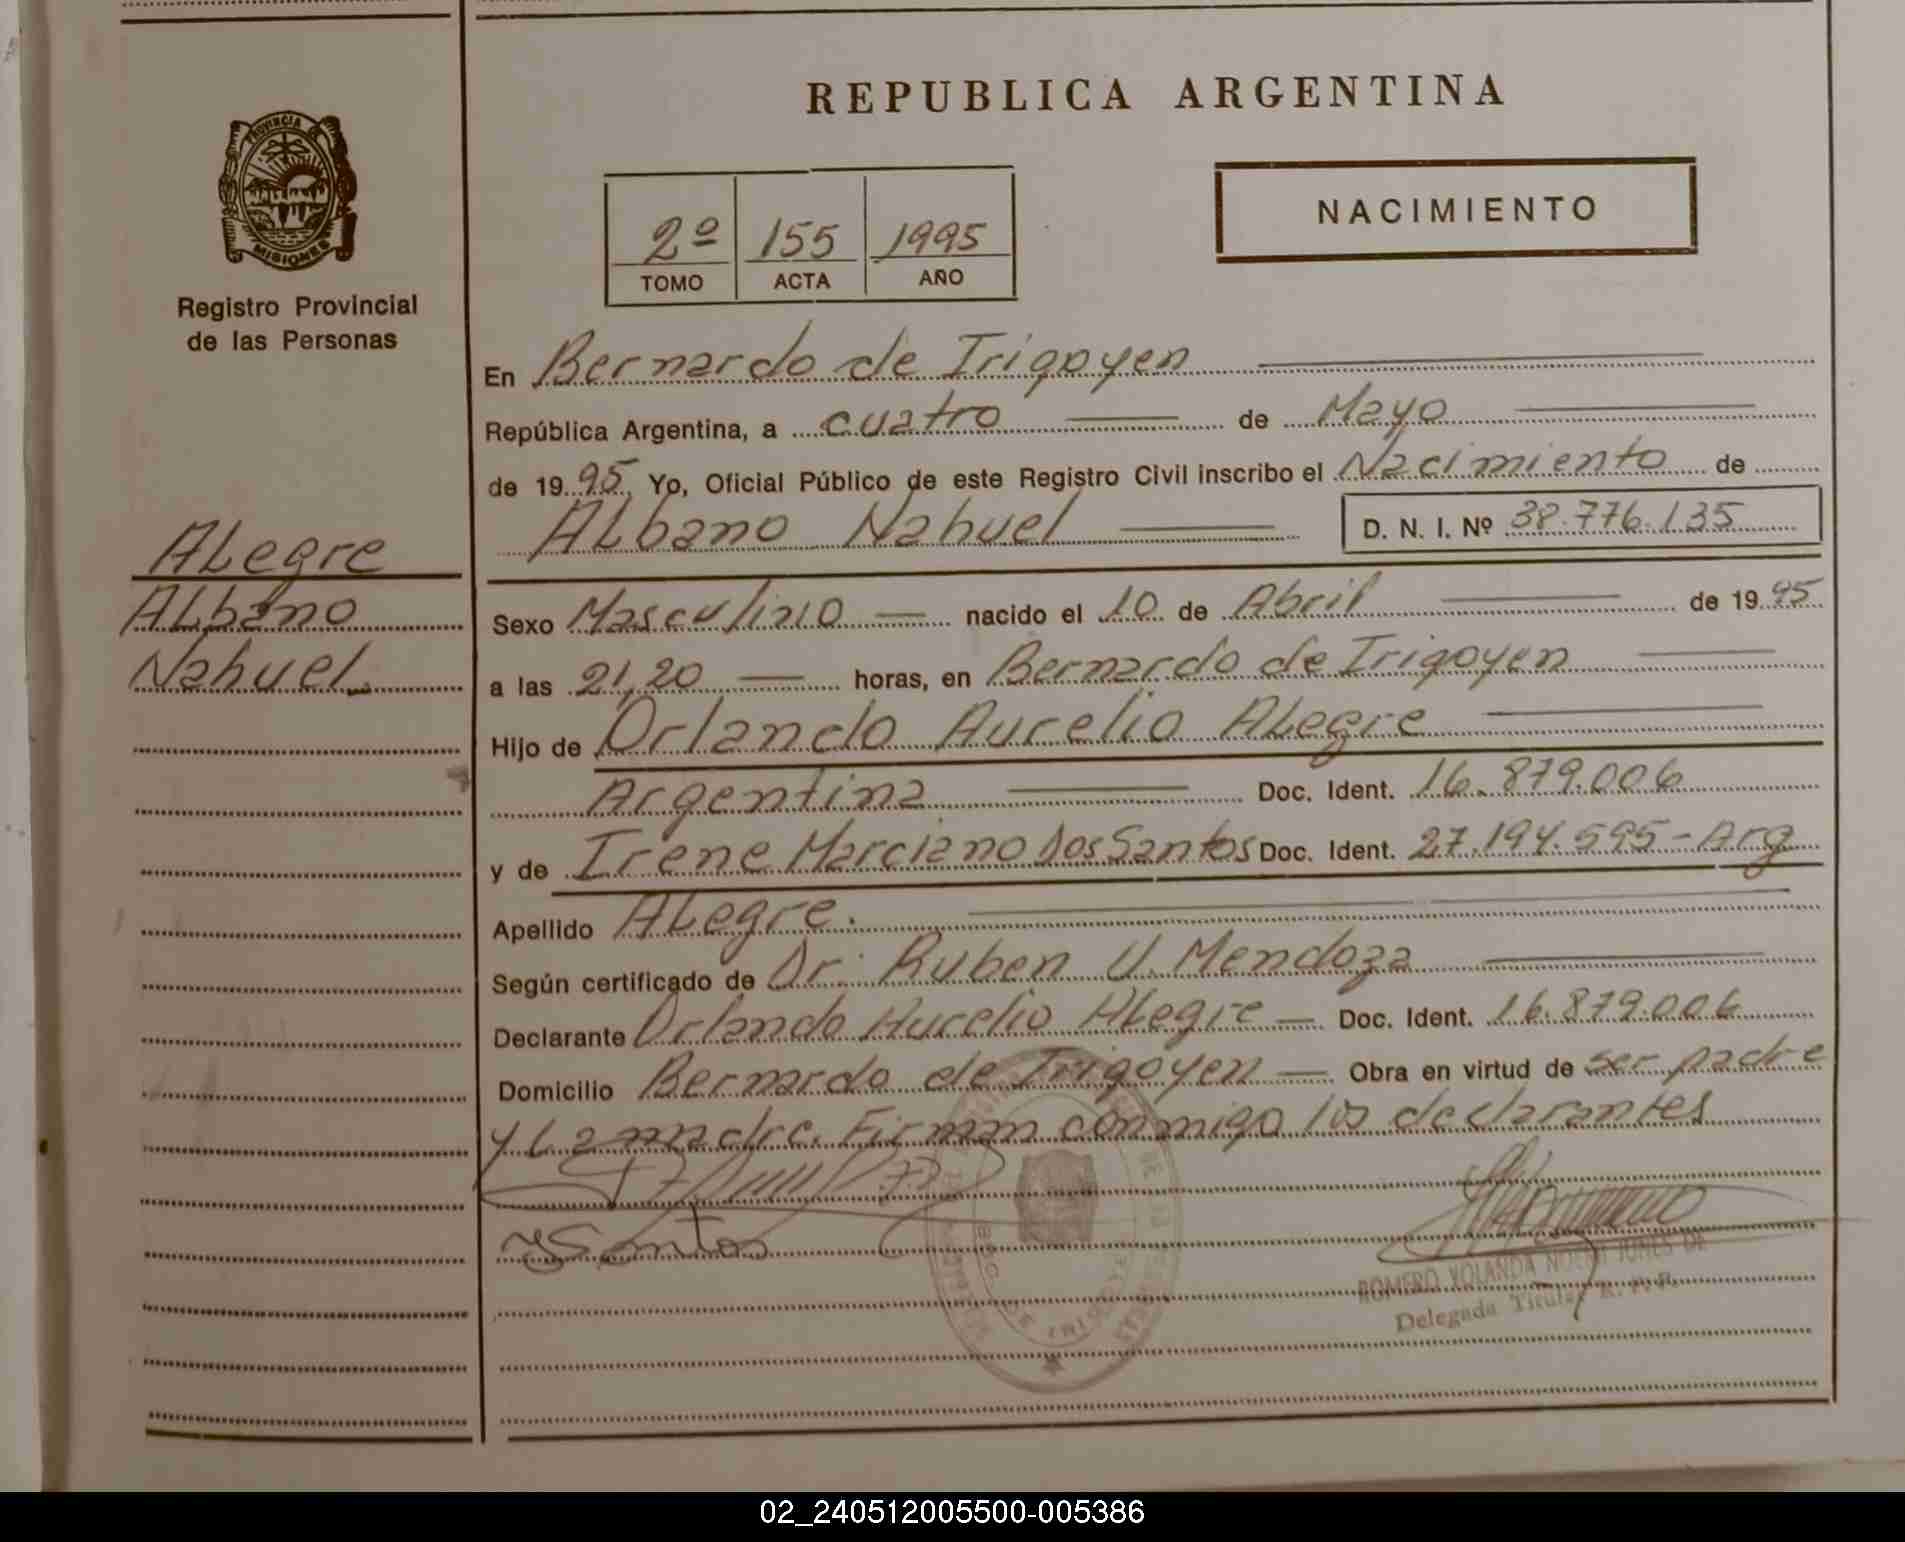 REPUBLICA ARGENTINA
PROVINCIA DE
MISIONES
Registro Provincial
de las Personas
2º 155 1995
TOMO ACTA AÑO
NACIMIENTO
En Bernardo de Irigoyen
República Argentina, a cuatro de Mayo
de 1995 Yo, Oficial Público de este Registro Civil inscribo el Nacimiento de
ALbano Nahuel D. N. I. Nº 38.776.135
ALegre
ALbano
Nahuel
Sexo Masculino nacido el 10 de Abril de 1995
a las 21,20 horas, en Bernardo de Irigoyen
Hijo de Orlando Aurelio ALegre
Argentina Doc. Ident. 16.879.006
y de Irene Marciano Dos Santos Doc. Ident. 27.194.595-Arg
Apellido ALegre.
Según certificado de Dr. Ruben U. Mendoza
Declarante Orlando Aurelio ALegre Doc. Ident. 16.879.006
Domicilio Bernardo de Irigoyen Obra en virtud de ser padre
y La madre. Firman conmigo los declarantes
Santos
BDO. DE IRIGOYEN
ROMERO YOLANDA NOEMI JUNES DE
Delegada Titular R. P. P.
02_240512005500-005386